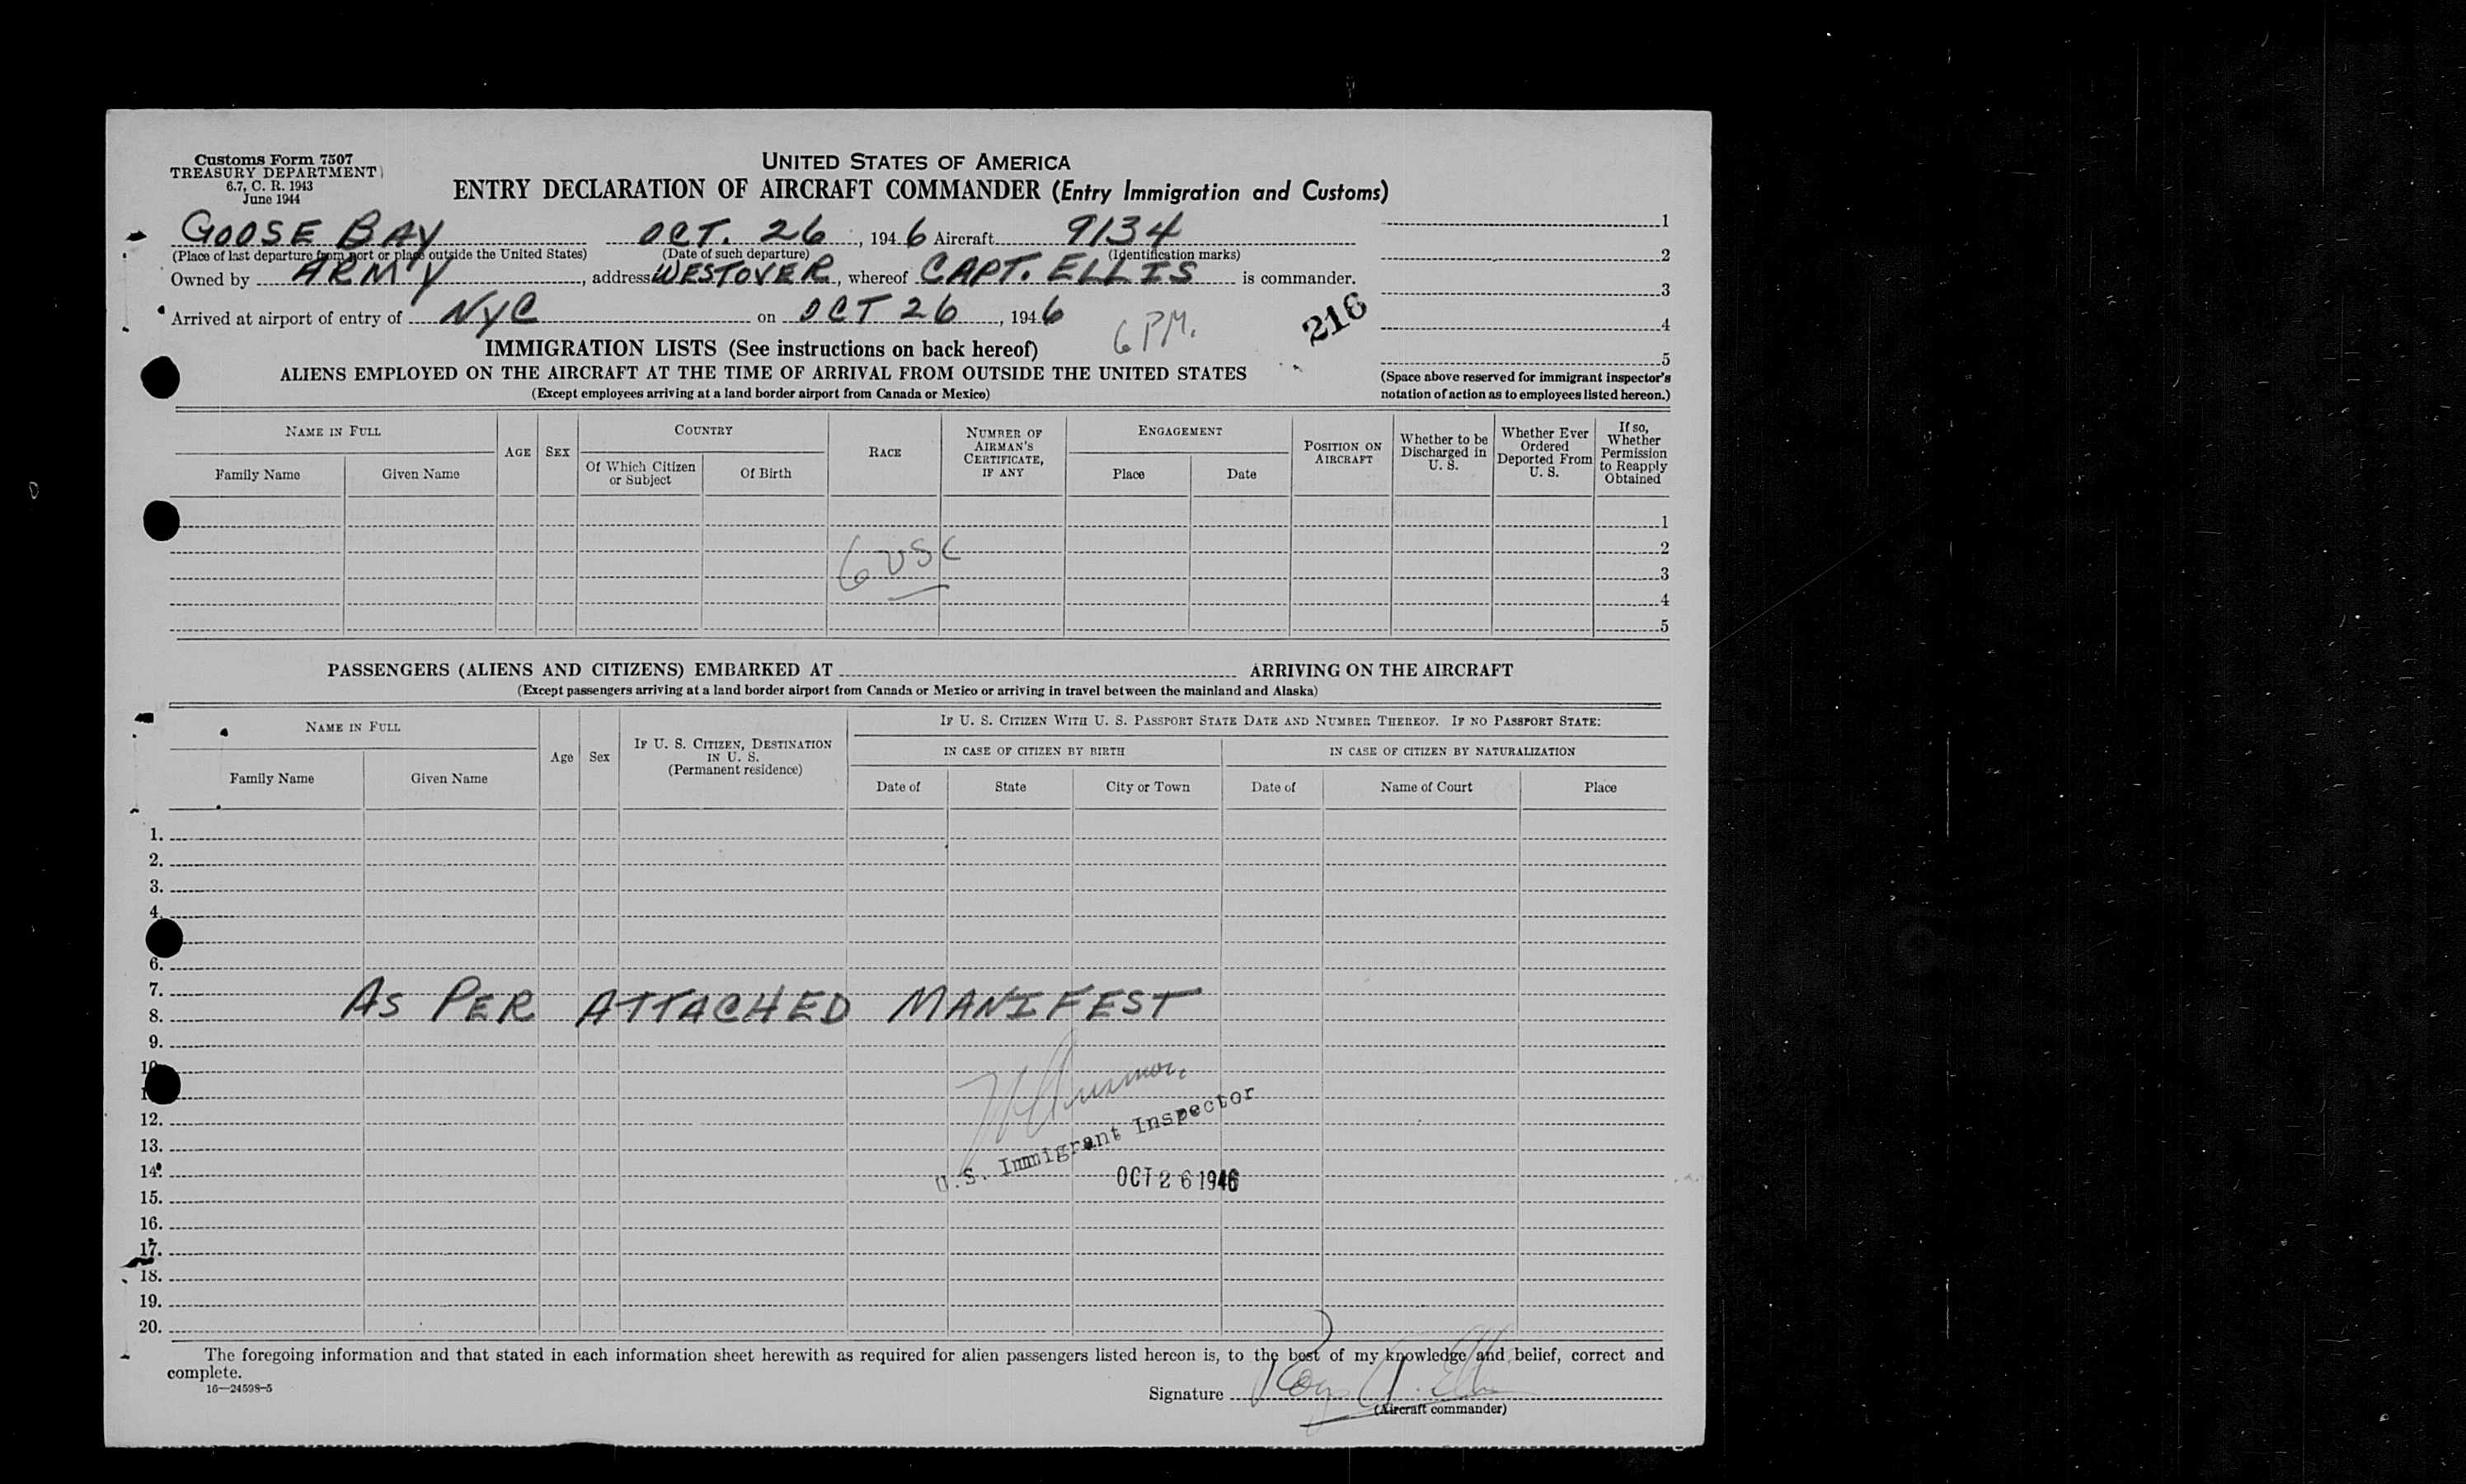 Customs Form 7507
TREASURY DEPARTMENT
6.7, C. R. 1943
June 1944
UNITED STATES OF AMERICA
ENTRY DECLARATION OF AIRCRAFT COMMANDER (Entry Immigration and Customs)
GOOSE BAY OCT. 26, 1946 Aircraft 9134
(Place of last departure from port or place outside the United States) (Date of such departure) (Identification marks)
Owned by ARMY, address WESTOVER, whereof CAPT. ELLIS is commander.
Arrived at airport of entry of NYC on OCT 26, 1946
6 PM.
216
1
2
3
4
5
(Space above reserved for immigrant inspector's
notation of action as to employees listed hereon.)
IMMIGRATION LISTS (See instructions on back hereof)
ALIENS EMPLOYED ON THE AIRCRAFT AT THE TIME OF ARRIVAL FROM OUTSIDE THE UNITED STATES
(Except employees arriving at a land border airport from Canada or Mexico)
NAME IN FULL
Family Name Given Name
AGE SEX
COUNTRY
Of Which Citizen or Subject
Of Birth
RACE
NUMBER OF AIRMAN'S CERTIFICATE, IF ANY
ENGAGEMENT
Place Date
POSITION ON AIRCRAFT
Whether to be Discharged in U. S.
Whether Ever Ordered Deported From U. S.
If so, Whether Permission to Reapply Obtained
1
2
6 USC
3
4
5
PASSENGERS (ALIENS AND CITIZENS) EMBARKED AT ARRIVING ON THE AIRCRAFT
(Except passengers arriving at a land border airport from Canada or Mexico or arriving in travel between the mainland and Alaska)
NAME IN FULL
Family Name Given Name
Age Sex
IF U. S. CITIZEN, DESTINATION IN U. S. (Permanent residence)
IF U. S. CITIZEN WITH U. S. PASSPORT STATE DATE AND NUMBER THEREOF. IF NO PASSPORT STATE:
IN CASE OF CITIZEN BY BIRTH IN CASE OF CITIZEN BY NATURALIZATION
Date of State City or Town Date of Name of Court Place
1.
2.
3.
4.
6.
7.
AS PER ATTACHED MANIFEST
8.
9.
10
1
12.
13.
14.
15.
16.
17.
18.
19.
20.
U.S. Immigrant Inspector
OCT 26 1946
The foregoing information and that stated in each information sheet herewith as required for alien passengers listed hereon is, to the best of my knowledge and belief, correct and
complete.
16—24598-5
Signature Roy A. Ellis
(Aircraft commander)